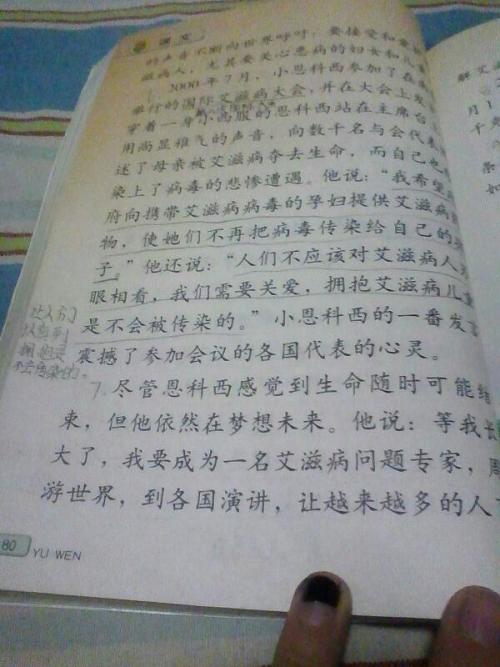 课文
的声音不断向世界呼吁：要接受和
滋病人，尤其要关心患病的妇女和儿
2000年7月，小恩科西参加了在南
举行的国际艾滋病大会，并在大会上发
穿着一身小西服的恩科西站在主席台
用尚显稚气的声音，向数千名与会代表
述了母亲被艾滋病夺去生命，而自己也
染上了病毒的悲惨遭遇。他说：“我希望
府向携带艾滋病病毒的孕妇提供艾滋病
物，使她们不再把病毒传染给自己的
子。”他还说：“人们不应该对艾滋病人
眼相看，我们需要关爱，拥抱艾滋病儿
是不会被传染的。”小恩科西的一番发言
震撼了参加会议的各国代表的心灵。
让人们
认识到
拥抱是
不会传染的。
7.尽管恩科西感觉到生命随时可能结
束，但他依然在梦想未来。他说：等我长
大了，我要成为一名艾滋病问题专家，周
游世界，到各国演讲，让越来越多的人
80
YU WEN
解艾
月1
条